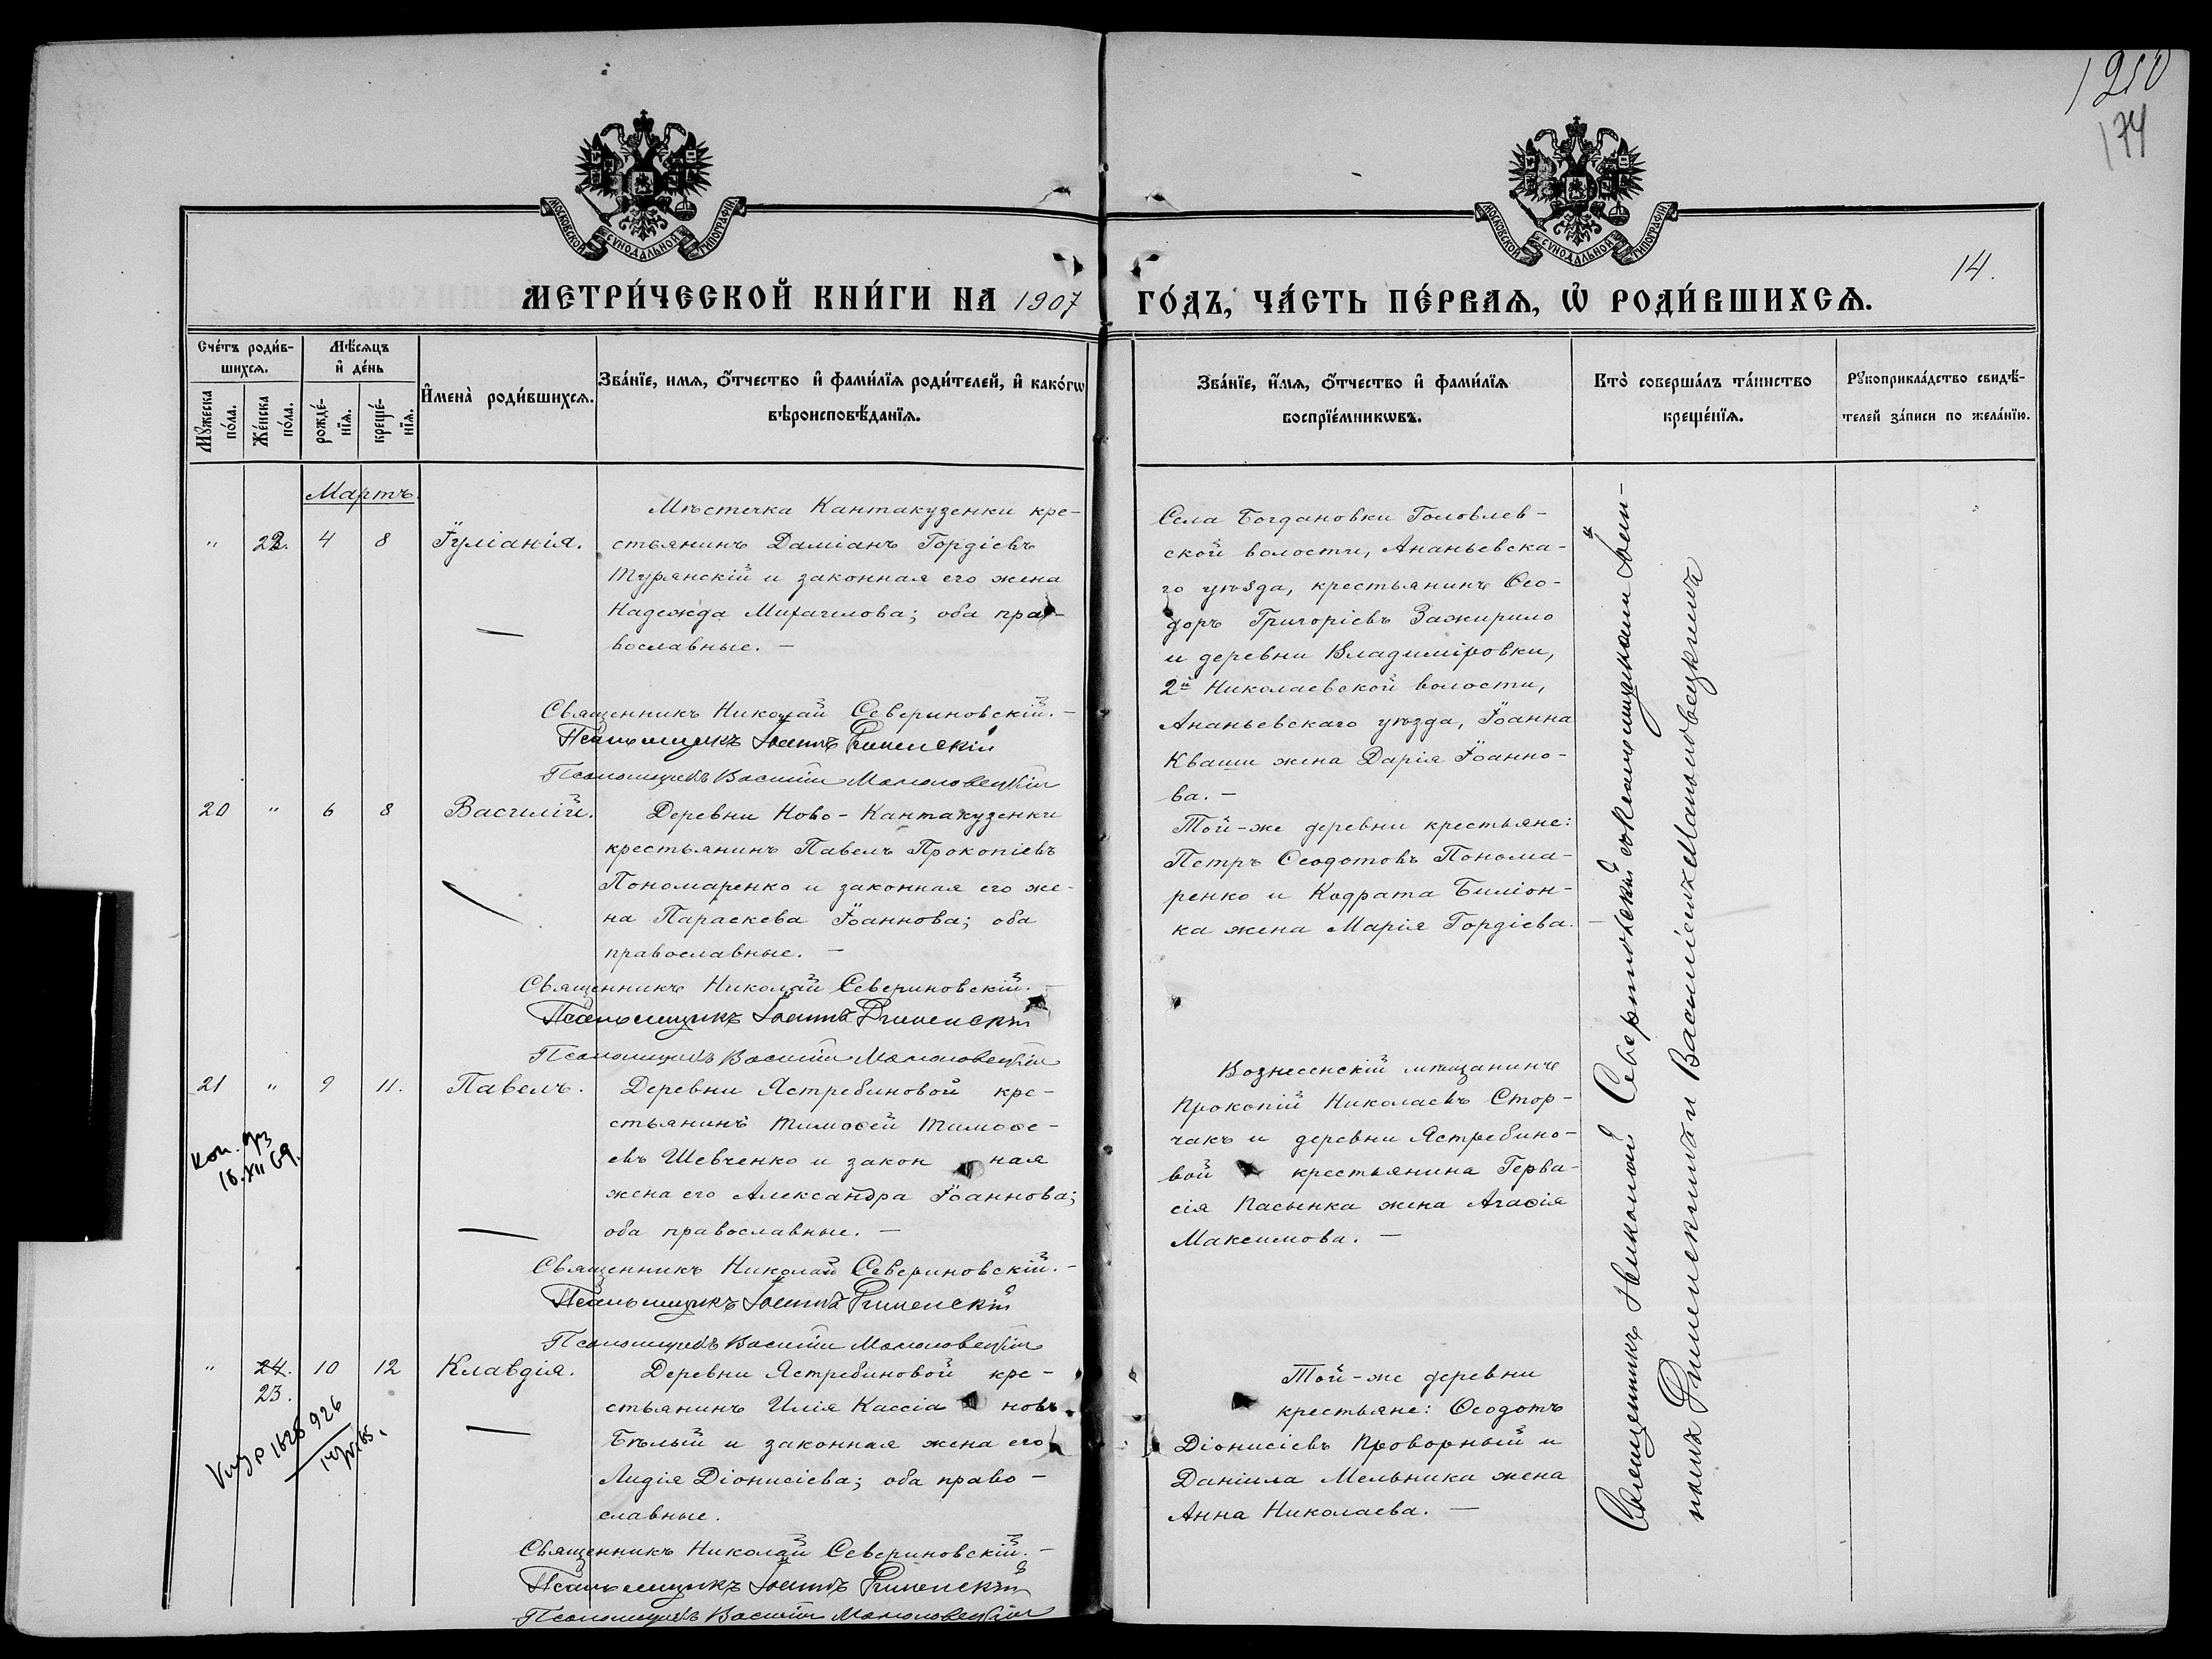 1210
174
МОСКОВСКОЙ СѴНОДАЛЬНОЙ ТИПОГРАФІИ
МОСКОВСКОЙ СѴНОДАЛЬНОЙ ТИПОГРАФІИ
14.
МЕТРИ́ЧЕСКОЙ КНИ́ГИ НА 1907 ГО́ДЪ, ЧА́СТЬ ПЕ́РВАѦ, Ѡ҆ РОДИ́ВШИХСѦ.
Сче́тъ роди́в-
шихсѧ.
Мѣ́сѧцъ
и҆ де́нь
Мꙋ́жеска
по́ла.
Же́нска
по́ла.
рожде́-
нїѧ.
креще́-
нїѧ.
И҆мена̀ роди́вшихсѧ.
Зва́нїе, имѧ, ѻ҆́тчество и҆ фами́лїѧ роди́телей, и҆ како́гѡ
вѣроисповѣ́данїѧ.
Зва́нїе, и҆́мѧ, ѻ҆́тчество и҆ фами́лїѧ
воспрїе́мникѡвъ.
Кто̀ соверша́лъ та́инство
креще́нїѧ.
Рꙋкоприкла́дство свидѣ́-
телей за́писи по жела́нїю.
Мартъ.
" 22. 4 8 Іуліанія.
Мѣстечка Кантакузенки кре-
стьянинъ Даміанъ Гордіевъ
Турянскій и законная его жена
Надежда Михаилова; оба пра-
вославные. —
Священникъ Николай Севериновскій. —
Псаломщикъ Іоаннъ
Псаломщикъ Василій
Села Богдановки Головлев-
ской волости, Ананьевска-
го уѣзда, крестьянинъ Ѳео-
доръ Григоріевъ Зажирило
и деревни Владиміровки,
2й Николаевской волости,
Ананьевскаго уѣзда, Іоанна
Кваши жена Дарія Іоанно-
ва. —
20 " 6 8 Василій.
Деревни Ново-Кантакузенки
крестьянинъ Павелъ Прокопіевъ
Пономаренко и законная его же-
на Параскева Іоаннова; оба
православные. —
Священникъ Николай Севериновскій. —
Псаломщикъ Іоаннъ
Псаломщикъ Василій
Той-же деревни крестьяне:
Петръ Ѳеодотовъ Понома-
ренко и Кодрата Биліон-
ка жена Марія Гордіева. —
21 " 9 11. Павелъ.
Коп.
16.XII 69.
Деревни Ястребиновой кре-
стьянинъ Тимоѳей Тимоѳе-
евъ Шевченко и закон ная
жена его Александра Іоаннова;
оба православные. —
Священникъ Николай Севериновскій. —
Псаломщикъ Іоаннъ
Псаломщикъ Василій
Вознесенскій мѣщанинъ
Прокопій Николаевъ Стор-
чакъ и деревни Ястребино-
вой крестьянина Герва-
сія Пасынка жена Агаѳія
Максимова. —
" 24. 10 12 Клавдія.
23.
926
Деревни Ястребиновой кре-
стьянинъ Илія Кассіа новъ
Бѣлый и законная жена его
Лидія Діонисіева; оба право-
славные.
Священникъ Николай Севериновскій. —
Псаломщикъ Іоаннъ
Псаломщикъ Василій
Той-же деревни
крестьяне: Ѳеодотъ
Діонисіевъ Проворный и
Даніила Мельника жена
Анна Николаева. —
Священникъ Николай Севериновскій